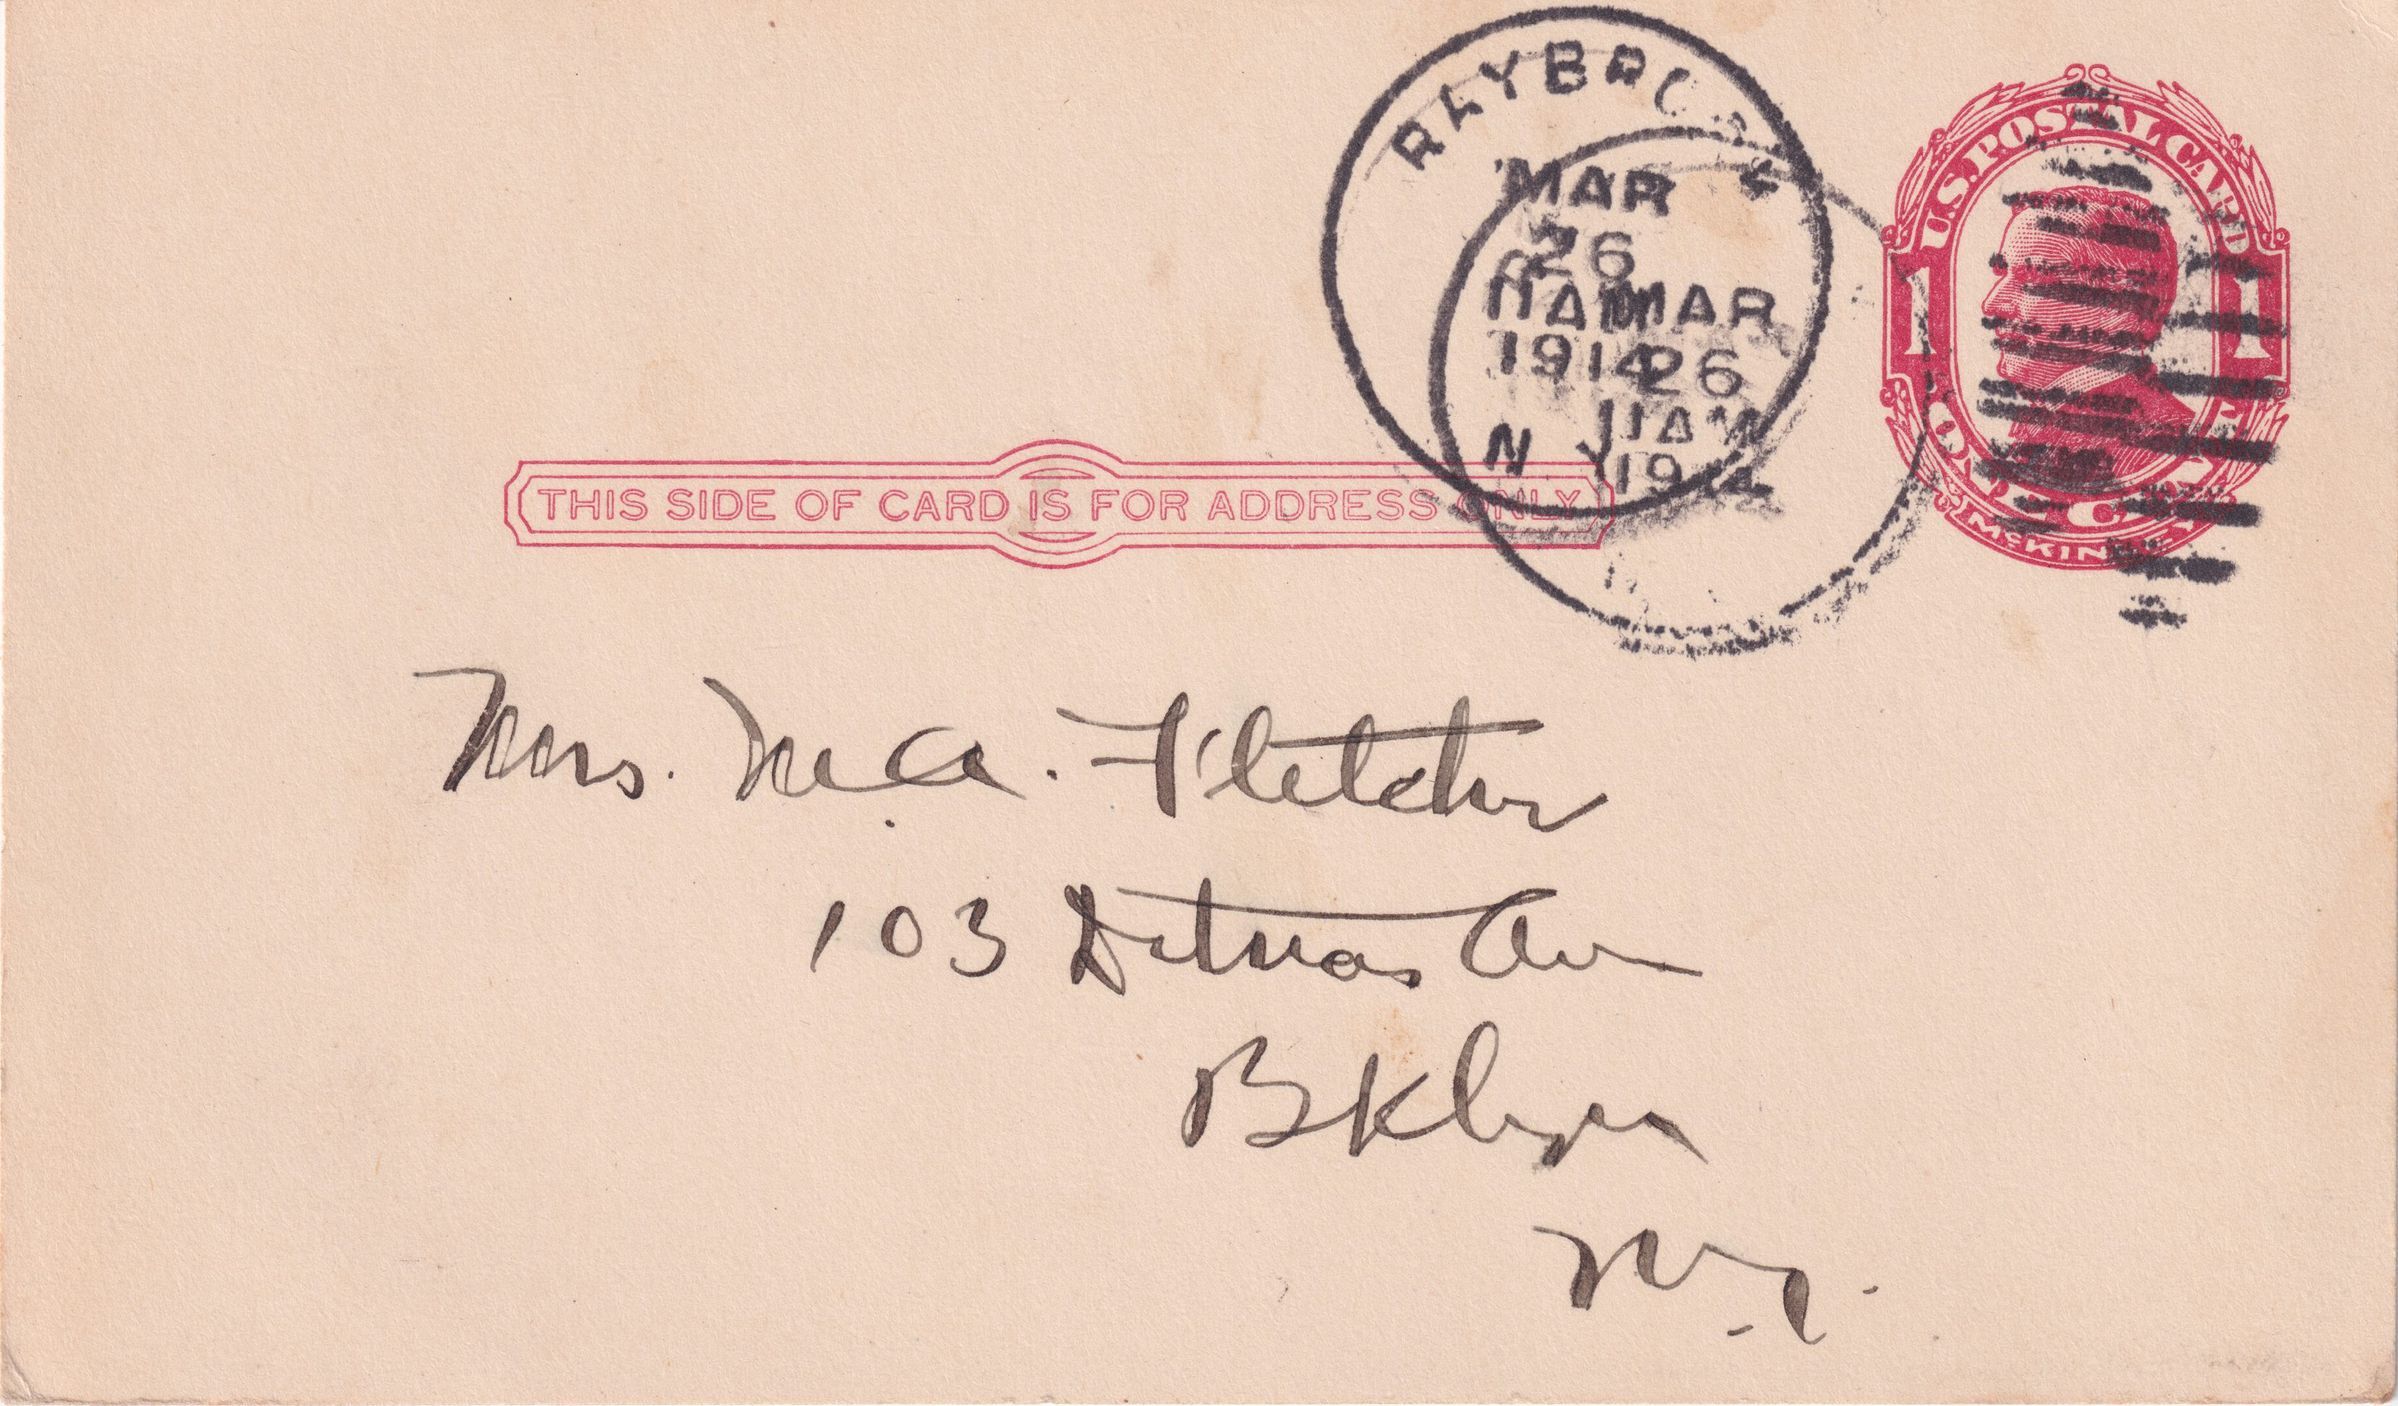 RAYBROOK
MAR
26
11 AM
1914
N Y
MAR
26
11 AM
1914
U.S. POSTAL CARD
1 1
ONE CENT
McKINLEY
THIS SIDE OF CARD IS FOR ADDRESS ONLY
Mrs. M. A. Fletcher
103 Ditmas Ave
Bklyn
N.Y.